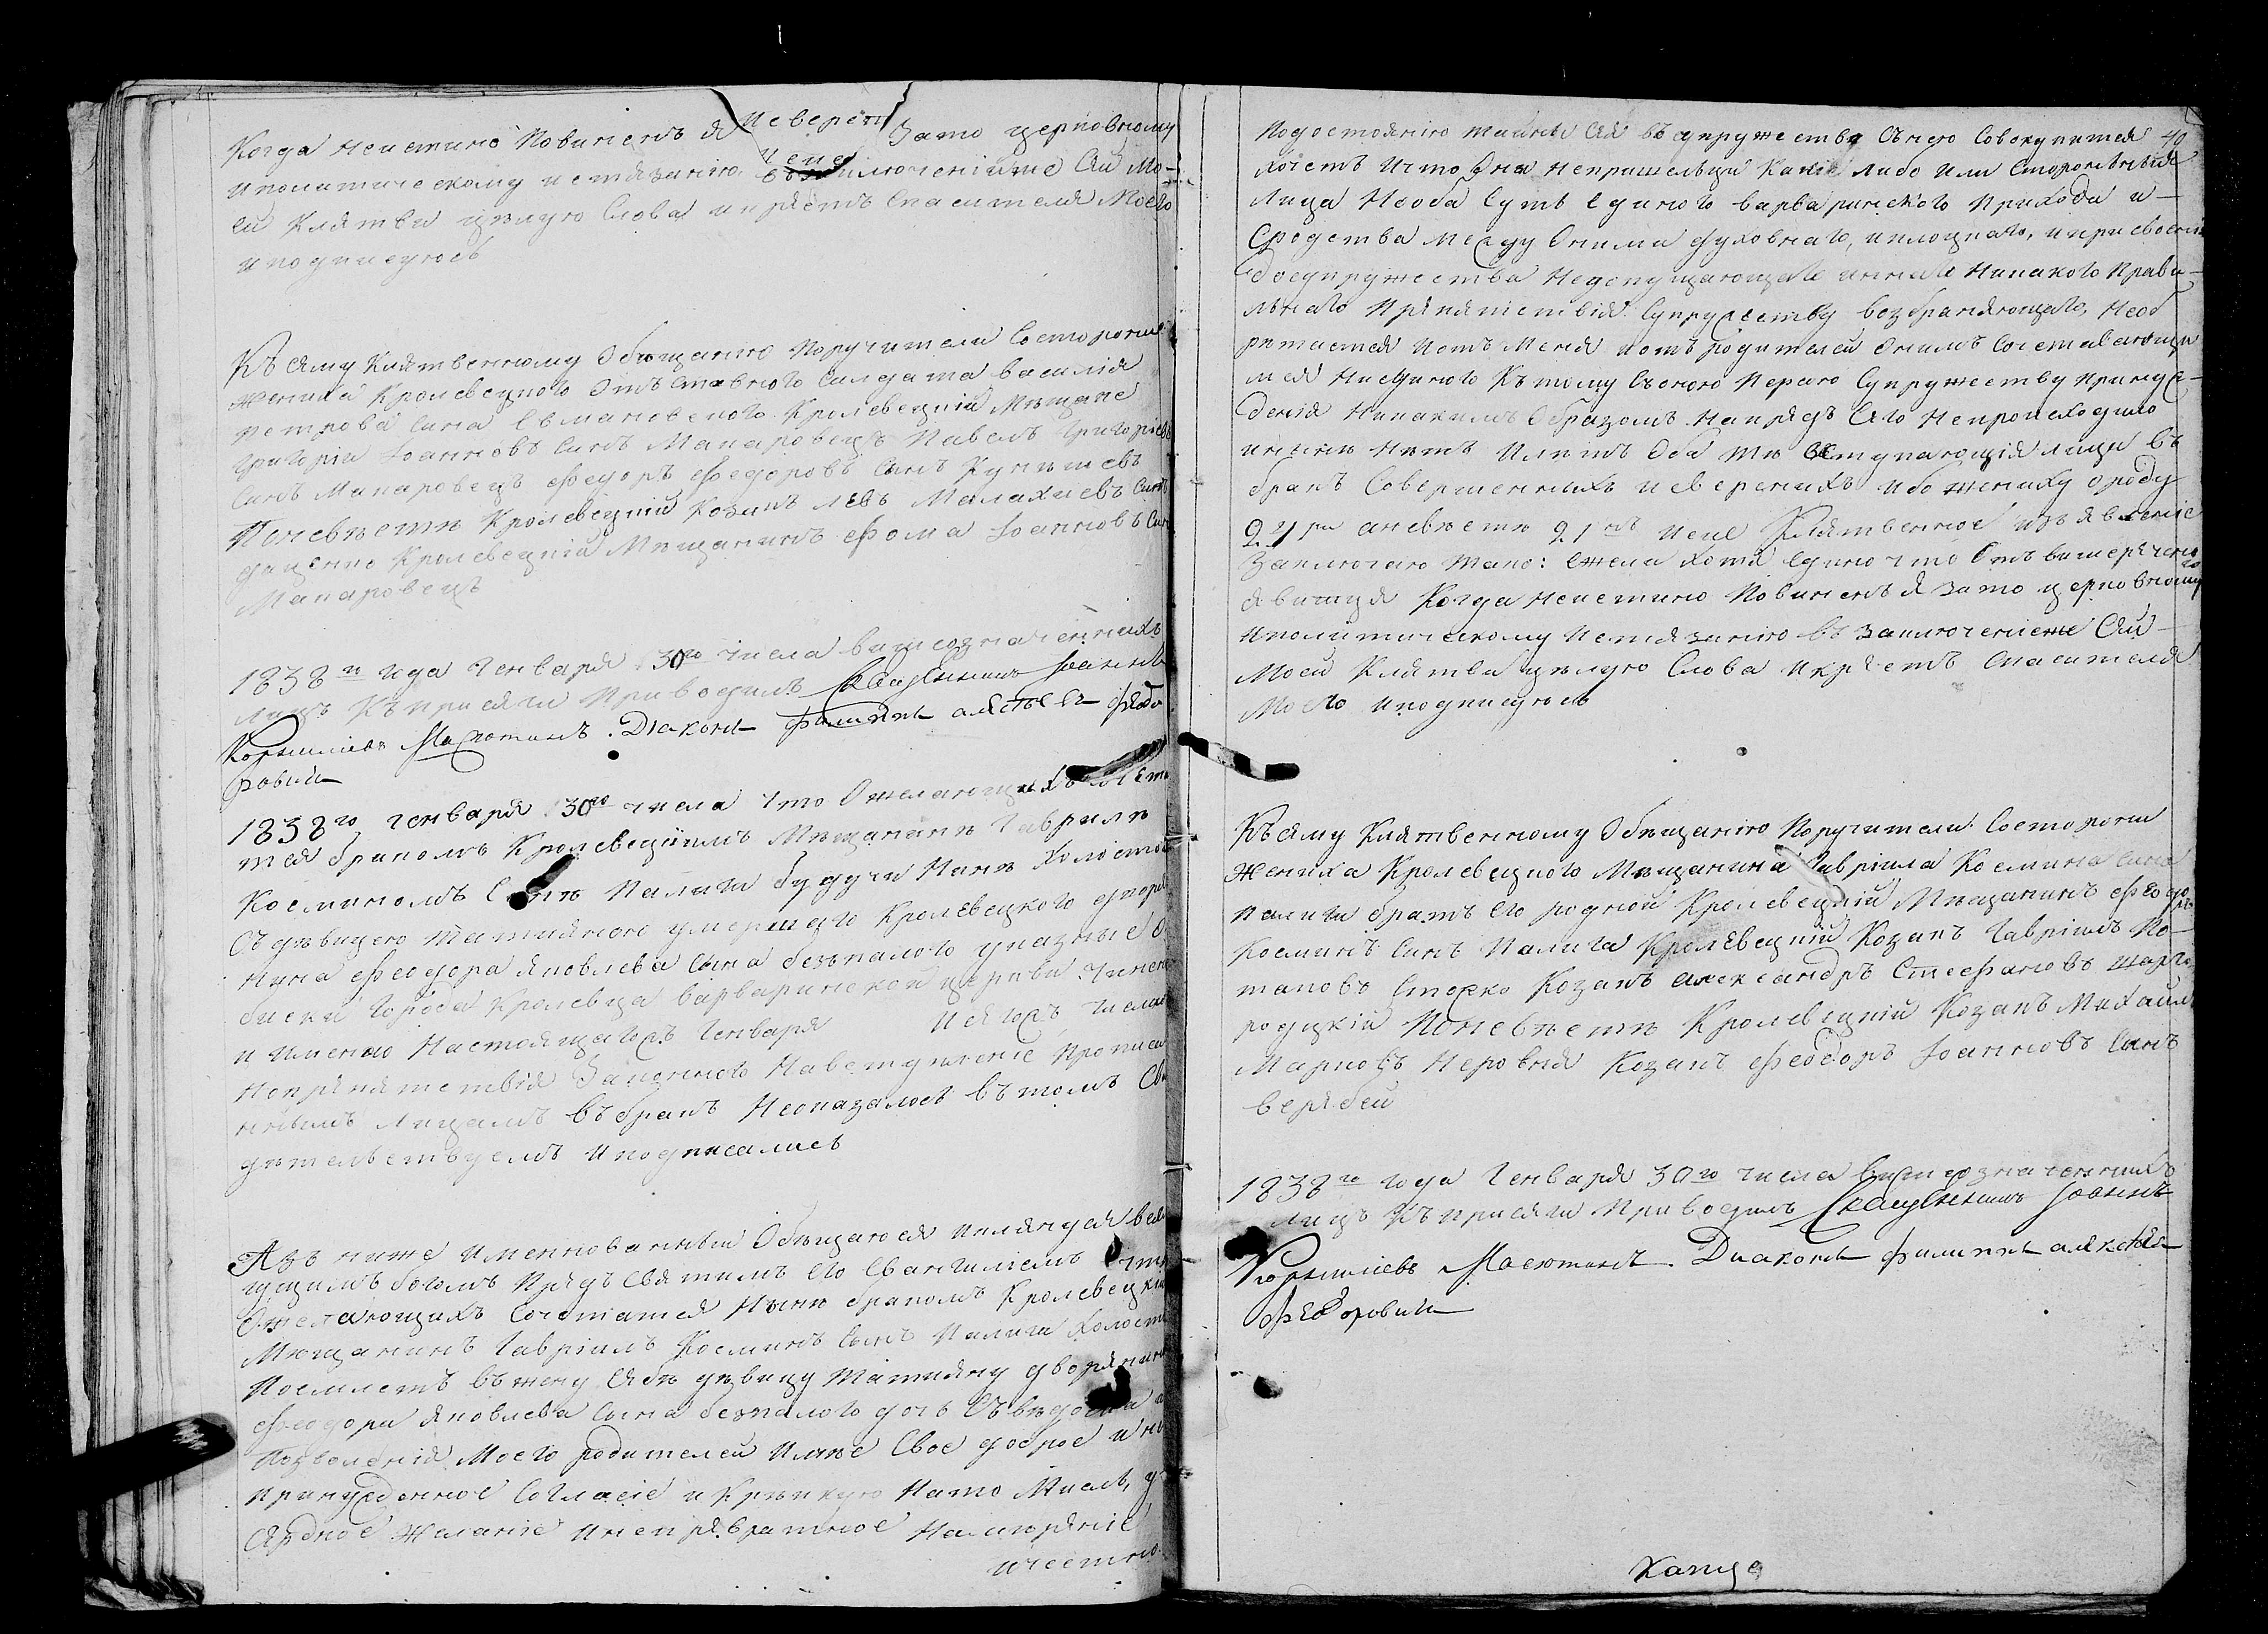 Когда неистино повиненъ я Зато церковному
и политическому истязанію. заключениіже Сей Мо-
ей Клятви цѣлую Слова икрестъ Спасителя Моего
и подписуюсь
Къ сему Клятвенному Обѣщанію поручители Состороны
жениха Кролевецкого Отъставного Салдата василія
петрова сина Кролевецкій Мѣщане
григорій Іоанновъ синъ Макаровецъ Павелъ григоріевъ
Синъ Макаровецъ Феодоръ Феодоровъ синъ
Поневѣстѣ Кролевецкій Козакъ Левъ Малахиевъ Синъ
Кролевецкій Мѣщанинъ Фома Іоанновъ Синъ
Макаровецъ
1838 го года Генваря 30го числа вишеозначенныхъ
лицъ Къприсяги Приводилъ Священникъ Іоаннъ
Корниліевъ Масютинъ. Діаконъ Филиппъ алексѣевъ Федо
ровичъ
1838го генваря 30го числа что Ожелающихъ сочета
тся бракомъ Кролевецкимъ Мѣщанинѣ Гаврилѣ
Косминомъ Синѣ Палиги будучи Нинѣ Холостой
Съдѣвицею татияною умершаго Кролевецкого дворя
нина Феодора яковлева сина безпалого указные О
биски города Кролевца варваринской церкви чинени
и Именно Настоящагожъ Генваря числахъ
нопрепятствія Законного Навступленіе прописа
ннымъ Лицамъ въбракъ Неоказалось въ томъ Сви
дѣтельствуемъ и подписались
Азъ ниже Именнованный Обѣщаюся иклянуся всемо
гущимъ богомъ Предъ Святимъ его Евангиліемъ
Ожелающихъ Сочетатся Нынѣ бракомъ Кролевецкій
Мющанинъ Гавріилъ Косминъ синъ Палига Холостій
Поемлетъ въ жену Себѣ дѣвицу татияну дворянина
Феодора яковлева сина безпалого дочь Съвѣдома и
Позволенія Моего родителей Имѣе Свое доброе и не
принужденное Согласіе и Крѣпкую Нато Мисль, у
сердное Жаланіе инепревратное Намиреніе
ичестно
Подостоянію тайны Сея въ супружество Сънею Совокупитея 40
хочетъ Ичто Они непришельци Какіе либо или Стороннія
лица Нооба Суть Единого варваринского прихода и
Сродства между Оними духовнаго, иплоцкаго, и присвоенія
досупружества Недопущающаго иннаго Никакого Прави-
льнаго препятствія Супружеству возбраняющаго, Необ
ритается Иотъ Меня иотъ родителей Онимъ Сочетавающи
мся Ниединого Къ тому Съоною Персою Супружеству принуж-
денія Никакимъ Образомъ Напредъ Сего Непроисходило
инынѣ Нѣтъ Илѣтъ Оба тѣ вступающія лици въ
бракъ Совершенныхъ исверсникъ ибо жениху отроду
24ри аневѣсти 21нъ Исие Клятвенное изъявленіе
Заключаю тако: Ежели хотя едино что Отъ вишереченнаго
явитця Когда неистино Повиненъ я зато церковному
и политическому Истязанію въ заключеніеже Сей
Моей Клятви цѣлую Слова икрестъ Спасителя
Моего и подписуюсь
Къ сему Клятвенному Обѣщанію поручители Состороны
жениха Кролевецкого Мѣщанина Гавріила Космина сина
палиги братъ Его родной Кролевецкій Мѣщанинъ Феодоръ
Косминъ Синъ Палига Кролевецкій Козакъ Гавріилъ По-
таповъ Козакъ александръ Стефановъ
Поневѣстѣ Кролевецкій Козакъ Михаилъ
Марковъ Неровня Козакъ Феодоръ Іоанновъ Синъ
верабей
1838го года Генваря 30го числа вишеозначенныхъ
лицъ Къприсяги Приводилъ Священникъ Іоаннъ
Корниліевъ Масютинъ. Диаконъ Филиппъ алексѣя
Федоровичъ